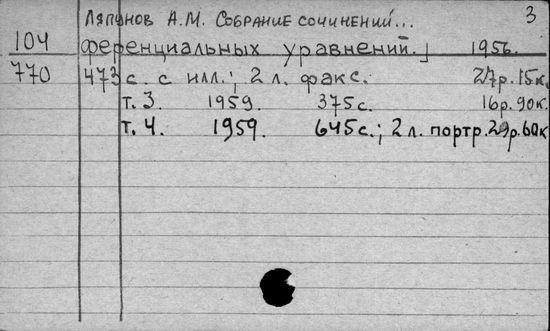 Ляпунов А.М. Собрание сочинений... 3
104 ференциальных уравнений.] 1956.
770 473 с. с илл.; 2 л. факс. 27р.15к.
т. 3. 1959. 375с. 16р.90к.
т. 4. 1959. 645с.; 2 л. портр. 29р.60к